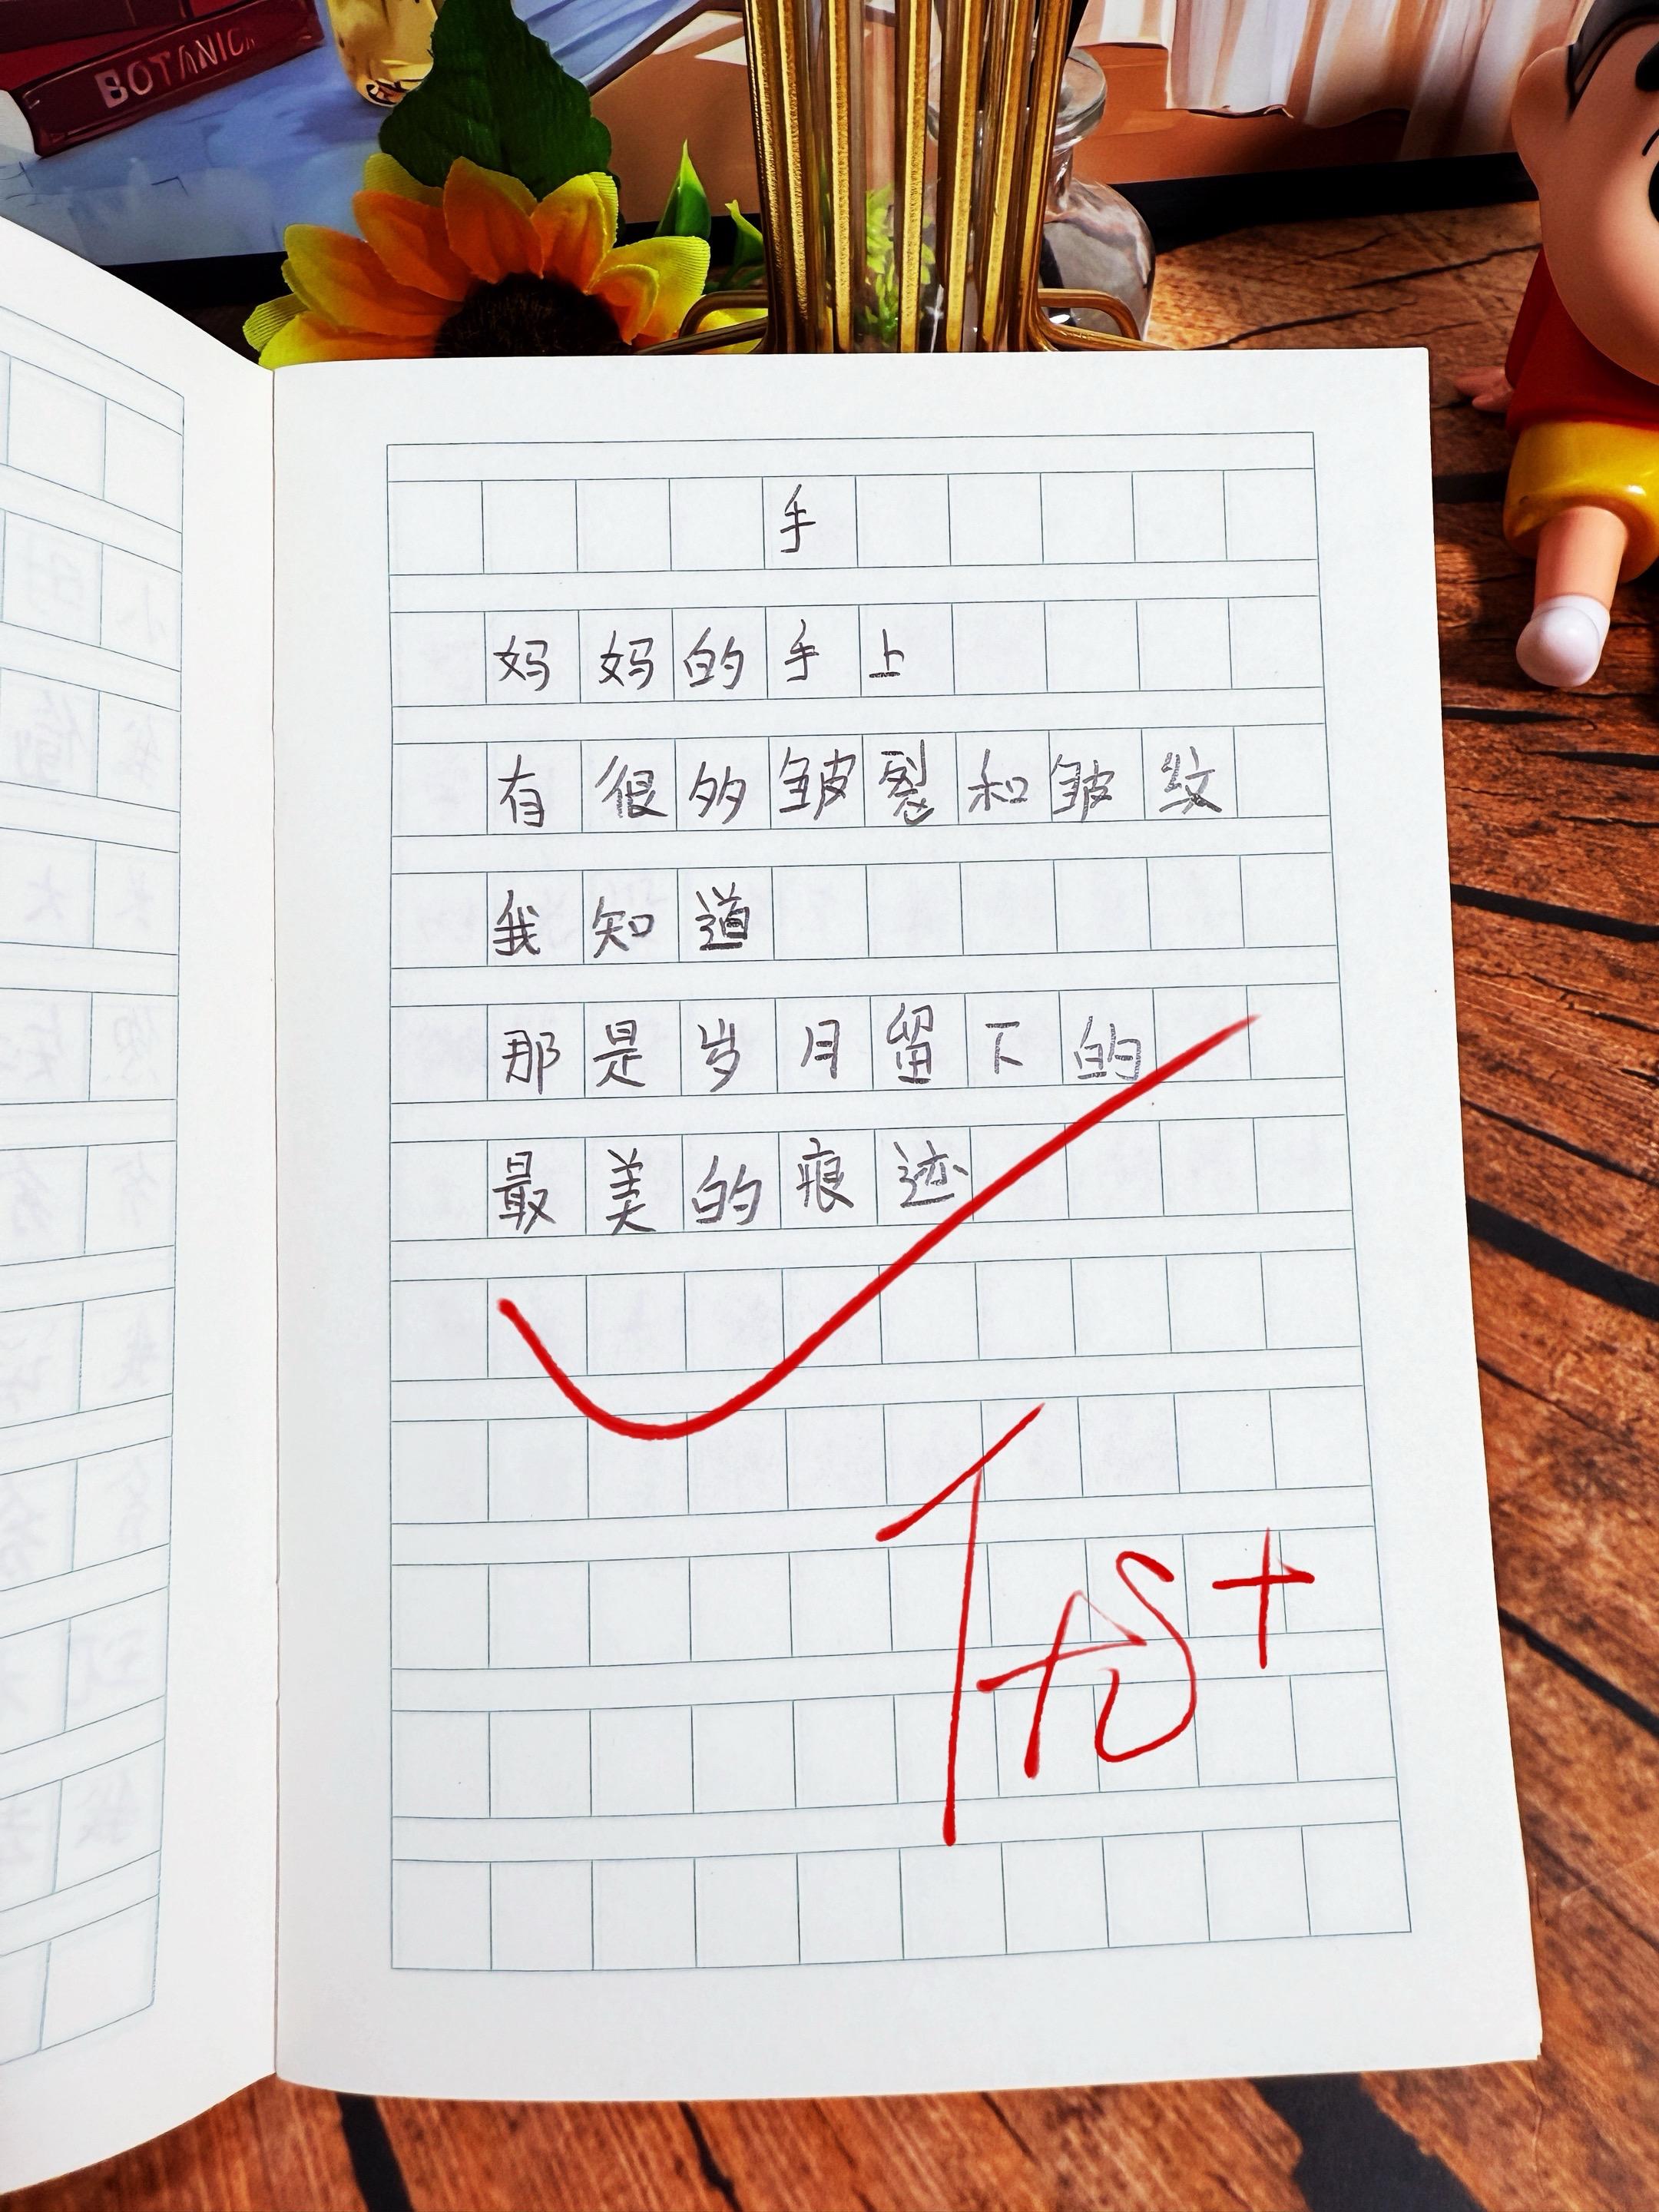 BOTANICA
手
妈妈的手上
有很多皱裂和皱纹
我知道
那是岁月留下的
最美的痕迹